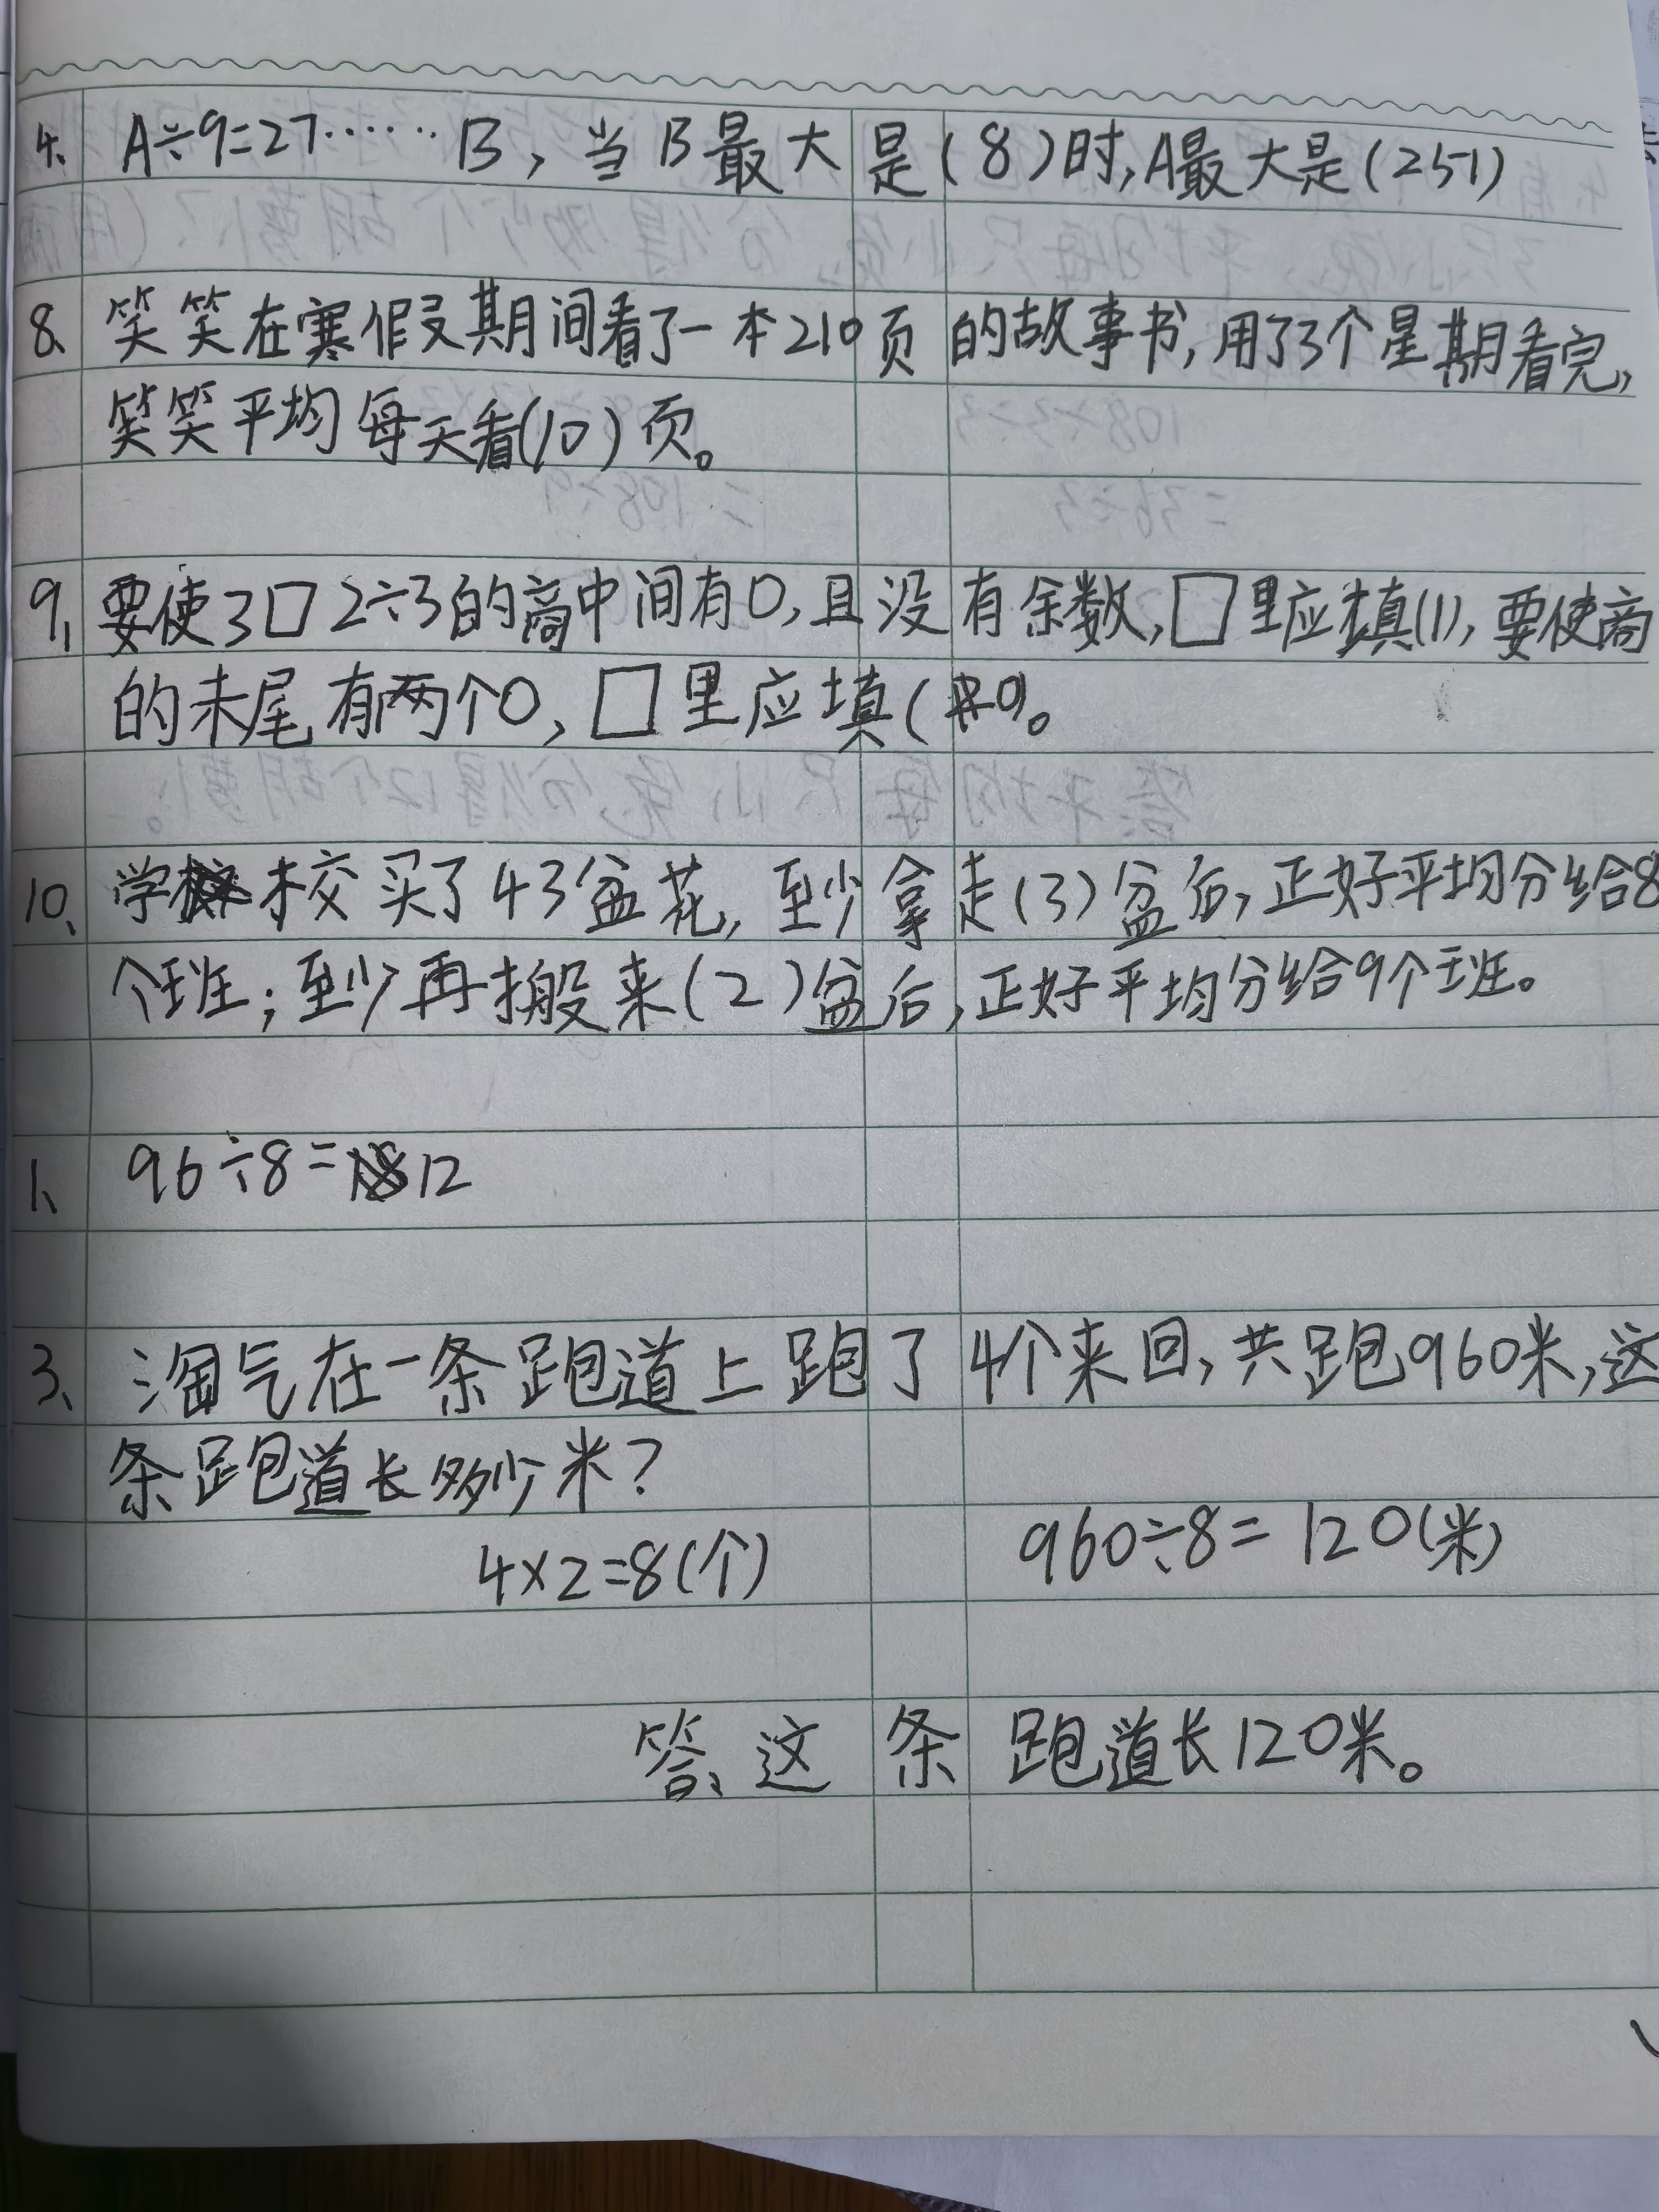 4、 A÷9=27……B，当B最大是(8)时,A最大是(251)
8、 笑笑在寒假期间看了一本210页的故事书,用了3个星期看完,
笑笑平均每天看(10)页。
9、 要使3□2÷3的商中间有0,且没有余数,□里应填(1),要使商
的末尾有两个0,□里应填(0)。
10、 学校买了43盆花,至少拿走(3)盆后,正好平均分给8
个班;至少再搬来(2)盆后,正好平均分给9个班。
1、 96÷8=12
3、 淘气在一条跑道上跑了4个来回,共跑960米,这
条跑道长多少米?
4×2=8(个) 960÷8=120(米)
答、这条跑道长120米。